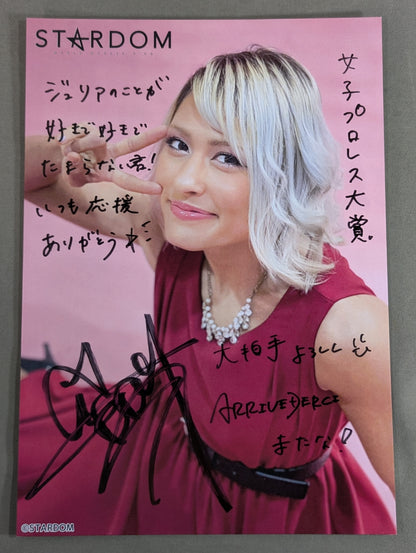 STARDOM
ジュリアのことが
好きで好きで
たまらない君!
いつも応援
ありがとうね
女子プロレス大賞。
大拍手よろしく
ARRIVEDERCI
またな!
©STARDOM